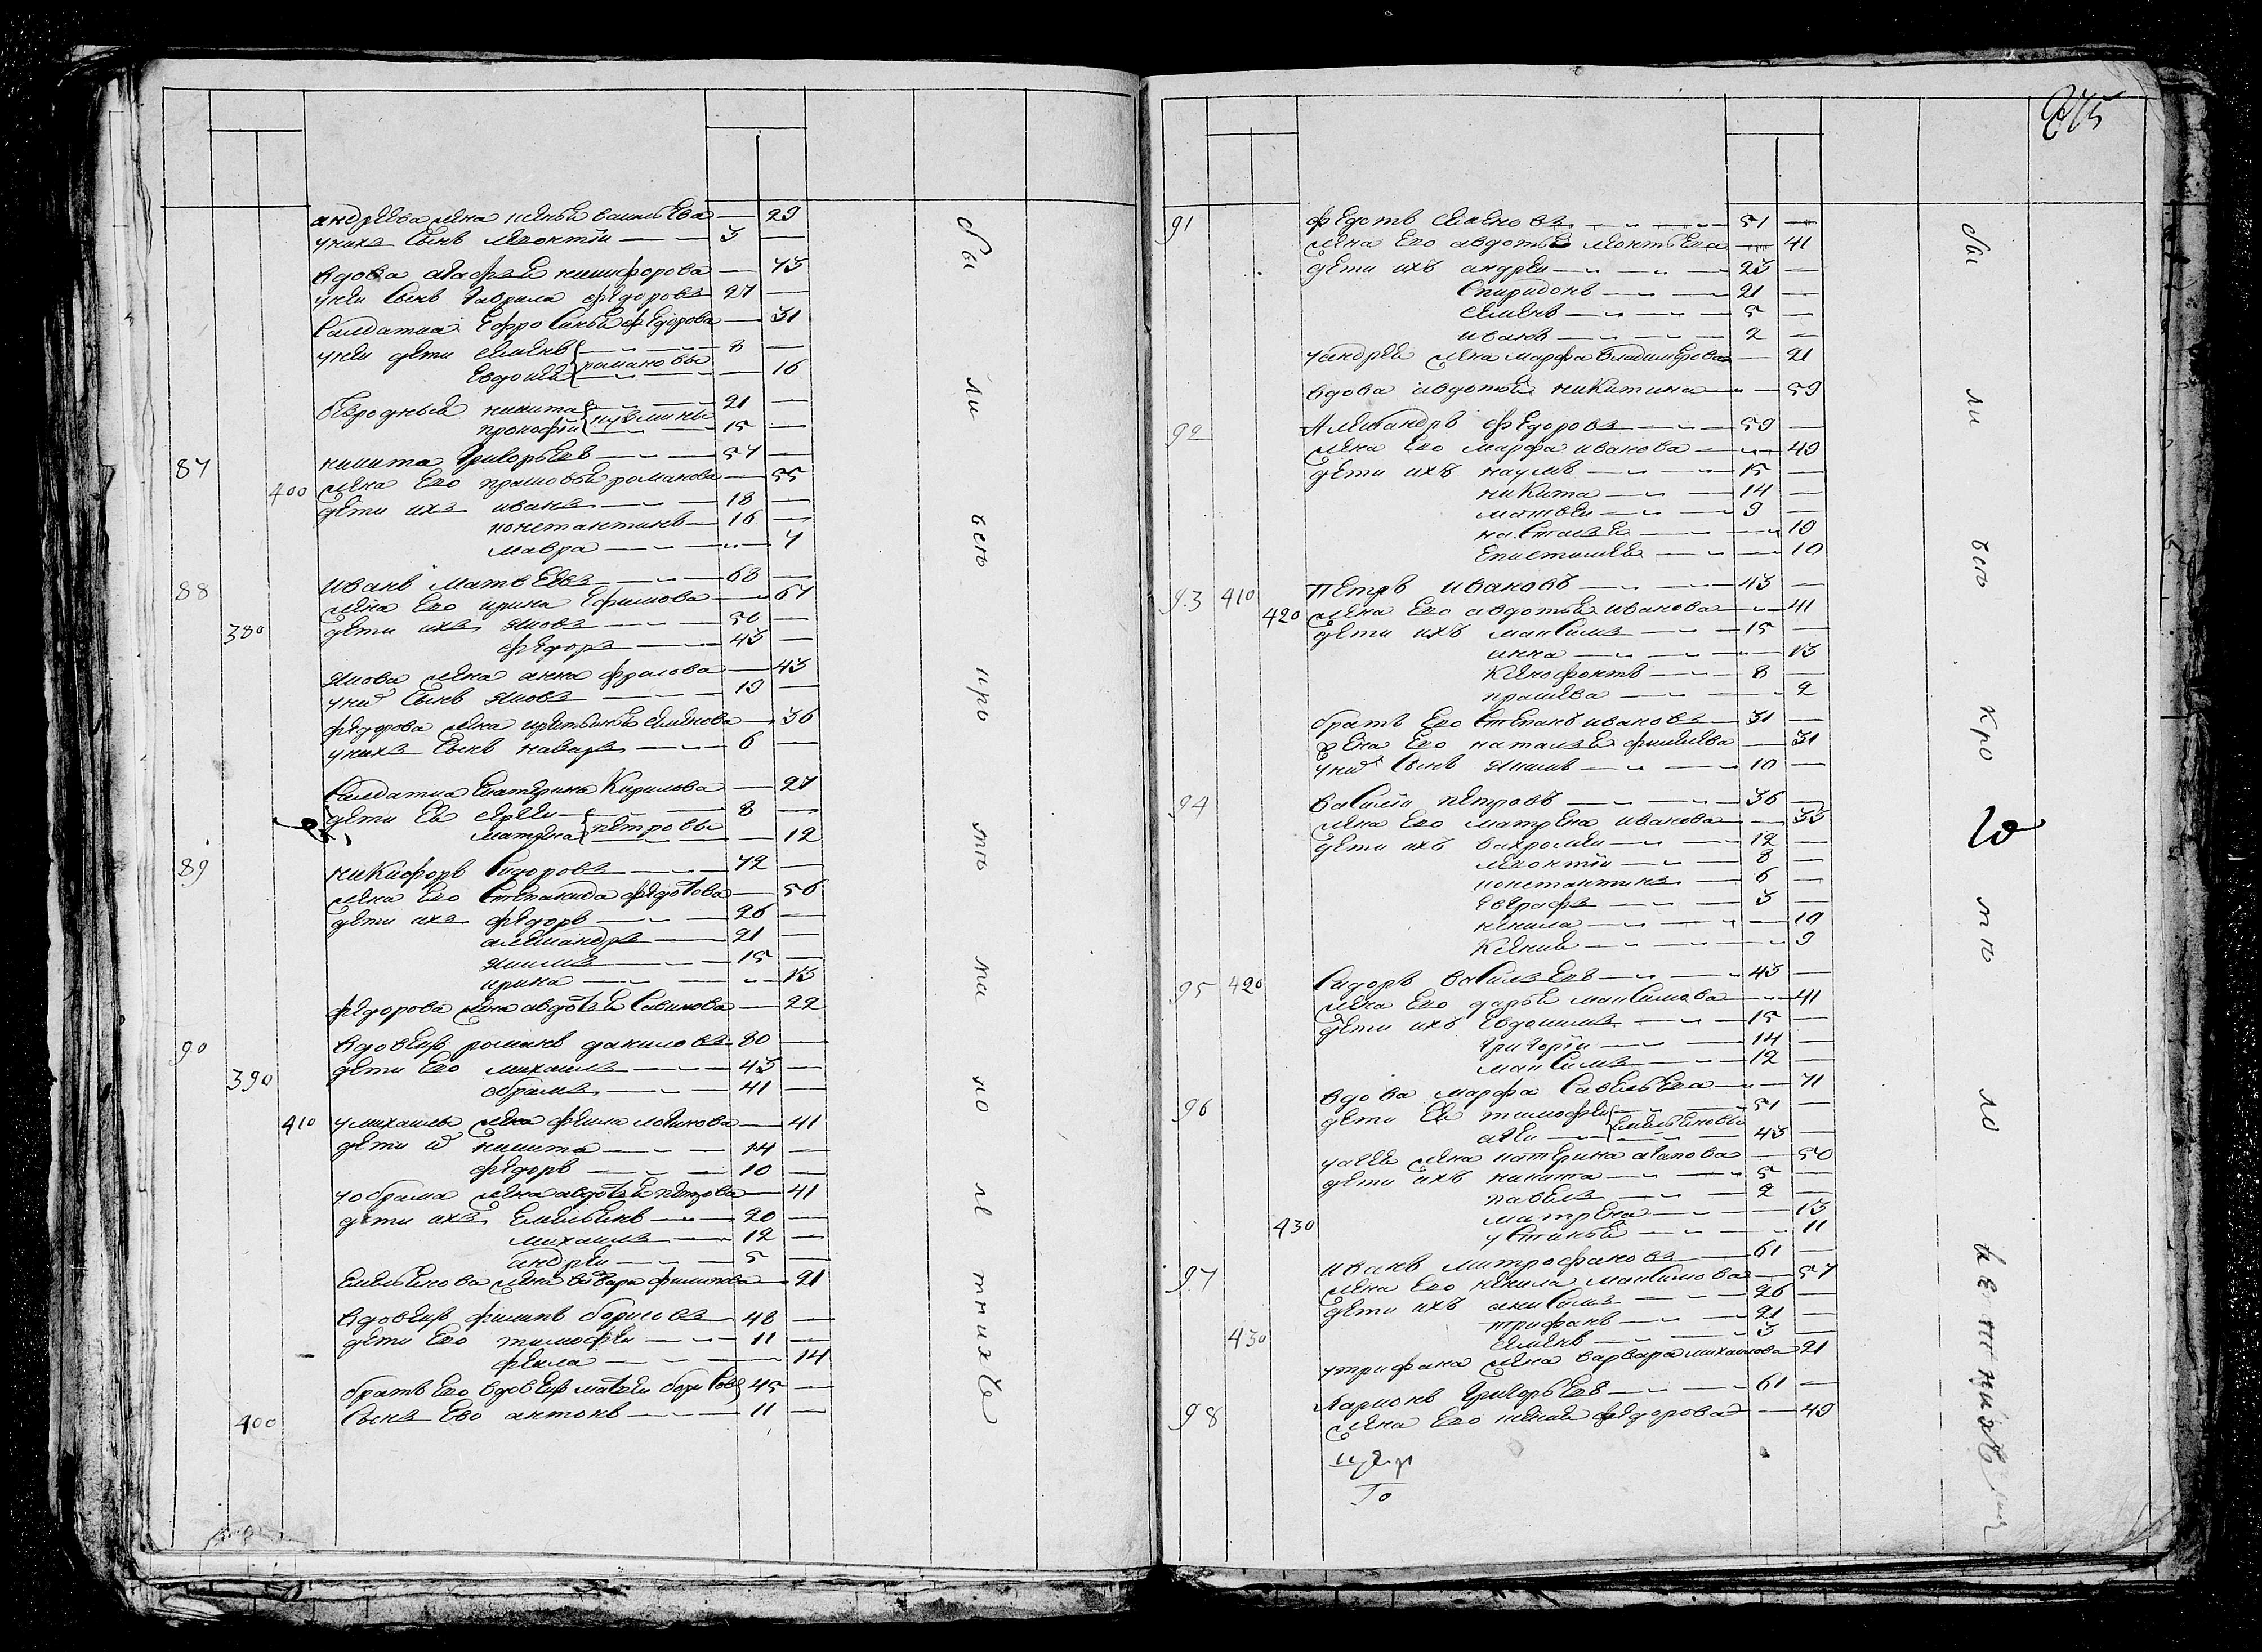 андреева жена ксенья васильева — 29
у нихъ сынъ леонтiй — 3 —
вдова агафья никифорова — 73
у неи сынъ гаврила федоровъ 27 —
салдатка Ефросинья федорова — 31
у неи дети семенъ — 8 —
романовы
Евдокия — 16
никита — 21 —
кузмины
прокофiй — 15 —
87 никита григорьевъ — 57 —
400 жена Его прасковья романова — 55
дети ихъ иванъ — 18 —
константинъ — 16 —
мавра — 7
88 иванъ матвеевъ — 68 —
жена Его ирина Ефимова — 67
380 дети ихъ яковъ — 50 —
федоръ — 43 —
якова жена анна фралова — 43
у них сынъ яковъ — 19 —
федорова жена семенова — 36
у нихъ сынъ назаръ — 6 —
салдатка Екатерина Кирилова — 27
дети Ея сергеи — 8 —
петровы
матрена — 12
89 никифоръ сидоровъ — 72 —
жена Его степанида федотова — 56
дети ихъ федоръ — 26 —
александръ — 21 —
якимъ — 15 —
ирина — 13
федорова жена авдотья савинова — 22
90 вдовецъ романъ даниловъ 80 —
дети Его михаила — 43 —
390 абрамъ — 41 —
410 у михаилы жена фекла логинова — 41
дети их никита — 14 —
федоръ — 10 —
у абрама жена авдотья петрова — 41
дети ихъ Емельянъ — 20 —
михаила — 12 —
андреи — 5 —
Емельянова жена варвара филипова — 21
вдовецъ филипъ борисовъ — 48 —
дети Его тимофеи — 11 —
фекла — 14
братъ Его вдовецъ матвеи борисовъ 45 —
400 сынъ Его антонъ — 11 —
бы ли въсъ кро мъ ма ло ле тнихъ
275
91 федотъ семеновъ — 51 —
жена Его авдотья леонтьева — 41
дети ихъ андреи — 23 —
спиридонъ — 21 —
семенъ — 5 —
иванъ — 2 —
у андрея жена марфа владимерова — 21
вдова авдотья никитина — 59
92 Александръ федоровъ — 59 —
жена Его марфа иванова — 49
дети ихъ наумъ — 15 —
никита — 14 —
матвеи — 9 —
настасья — 19
Епистимея — 10
93 410 Петръ ивановъ — 43 —
420 жена Его авдотья иванова — 41
дети ихъ максимъ — 15 —
анна — 13
Ксенофонтъ — 8 —
2
братъ Его степанъ ивановъ — 31 —
жена Его наталья — 31
у них сынъ якимъ — 10 —
94 василiй петровъ — 36 —
жена Его матрена иванова — 33
дети ихъ вахромеи — 12 —
леонтiи — 8 —
константинъ — 6 —
Евграфъ — 3 —
ненила — 19
Ксения — 9
95 420 сидоръ васильевъ — 43 —
жена Его дарья максимова — 41
дети ихъ Евдокимъ — 15 —
григорiи — 14 —
максимъ — 12 —
96 вдова марфа савельева — 71
дети Ея тимофеи — 51 —
Емельяновы
агеи — 43 —
у агея жена катерина агапова — 50
дети ихъ никита — 5 —
павелъ — 2 —
матрена — 13
430 устинья — 11
97 иванъ митрофановъ — 61 —
жена Его ненила максимова — 57
дети ихъ анисимъ — 26 —
трифанъ — 21 —
430 семенъ — 3 —
у трифана жена варвара михаилова 21
98 Ларионъ григорьевъ — 61 —
жена Его ксения федорова — 49
бы ли въсъ кро мъ ма ло ле тнихъ